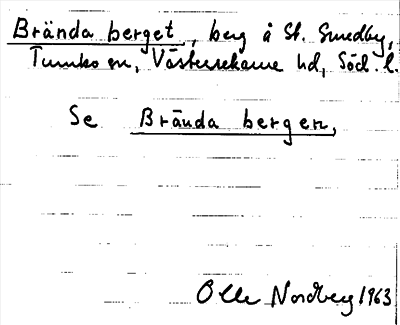 Brända berget, berg å St. Sundby,
Tumbo sn, Västerrekarne hd, Söd. l.
Se Brända bergen,
Olle Nordberg 1963